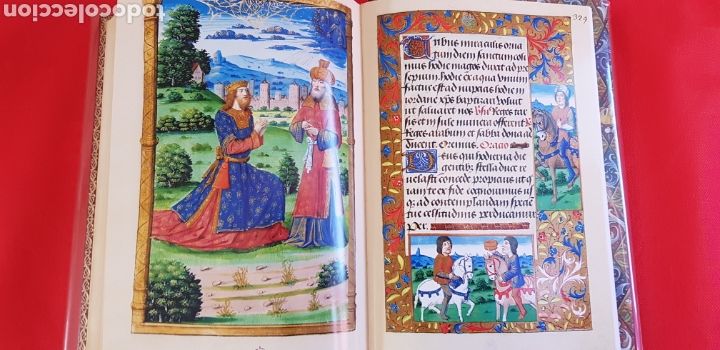 todocoleccion
329
Tribus miraculis orna
tum diem sanctum coli
mus hodie magos duxit ad pre
sepium hodie ex aqua vinum
factus est ad nupcias hodie in
iordane xp̄s baptizari voluit
ut salvaret nos
Reges thar
sis et insule munera offerent
Reges arabum et sabba dona ad
ducent. Oremus. Oracio
Deus qui hodierna die
gentibus stella duce re
velasti concede propicius ut q
te ex fide cognovimus us
q̄ ad contemplandam speciē
tue celsitudinis perducamur
Per.